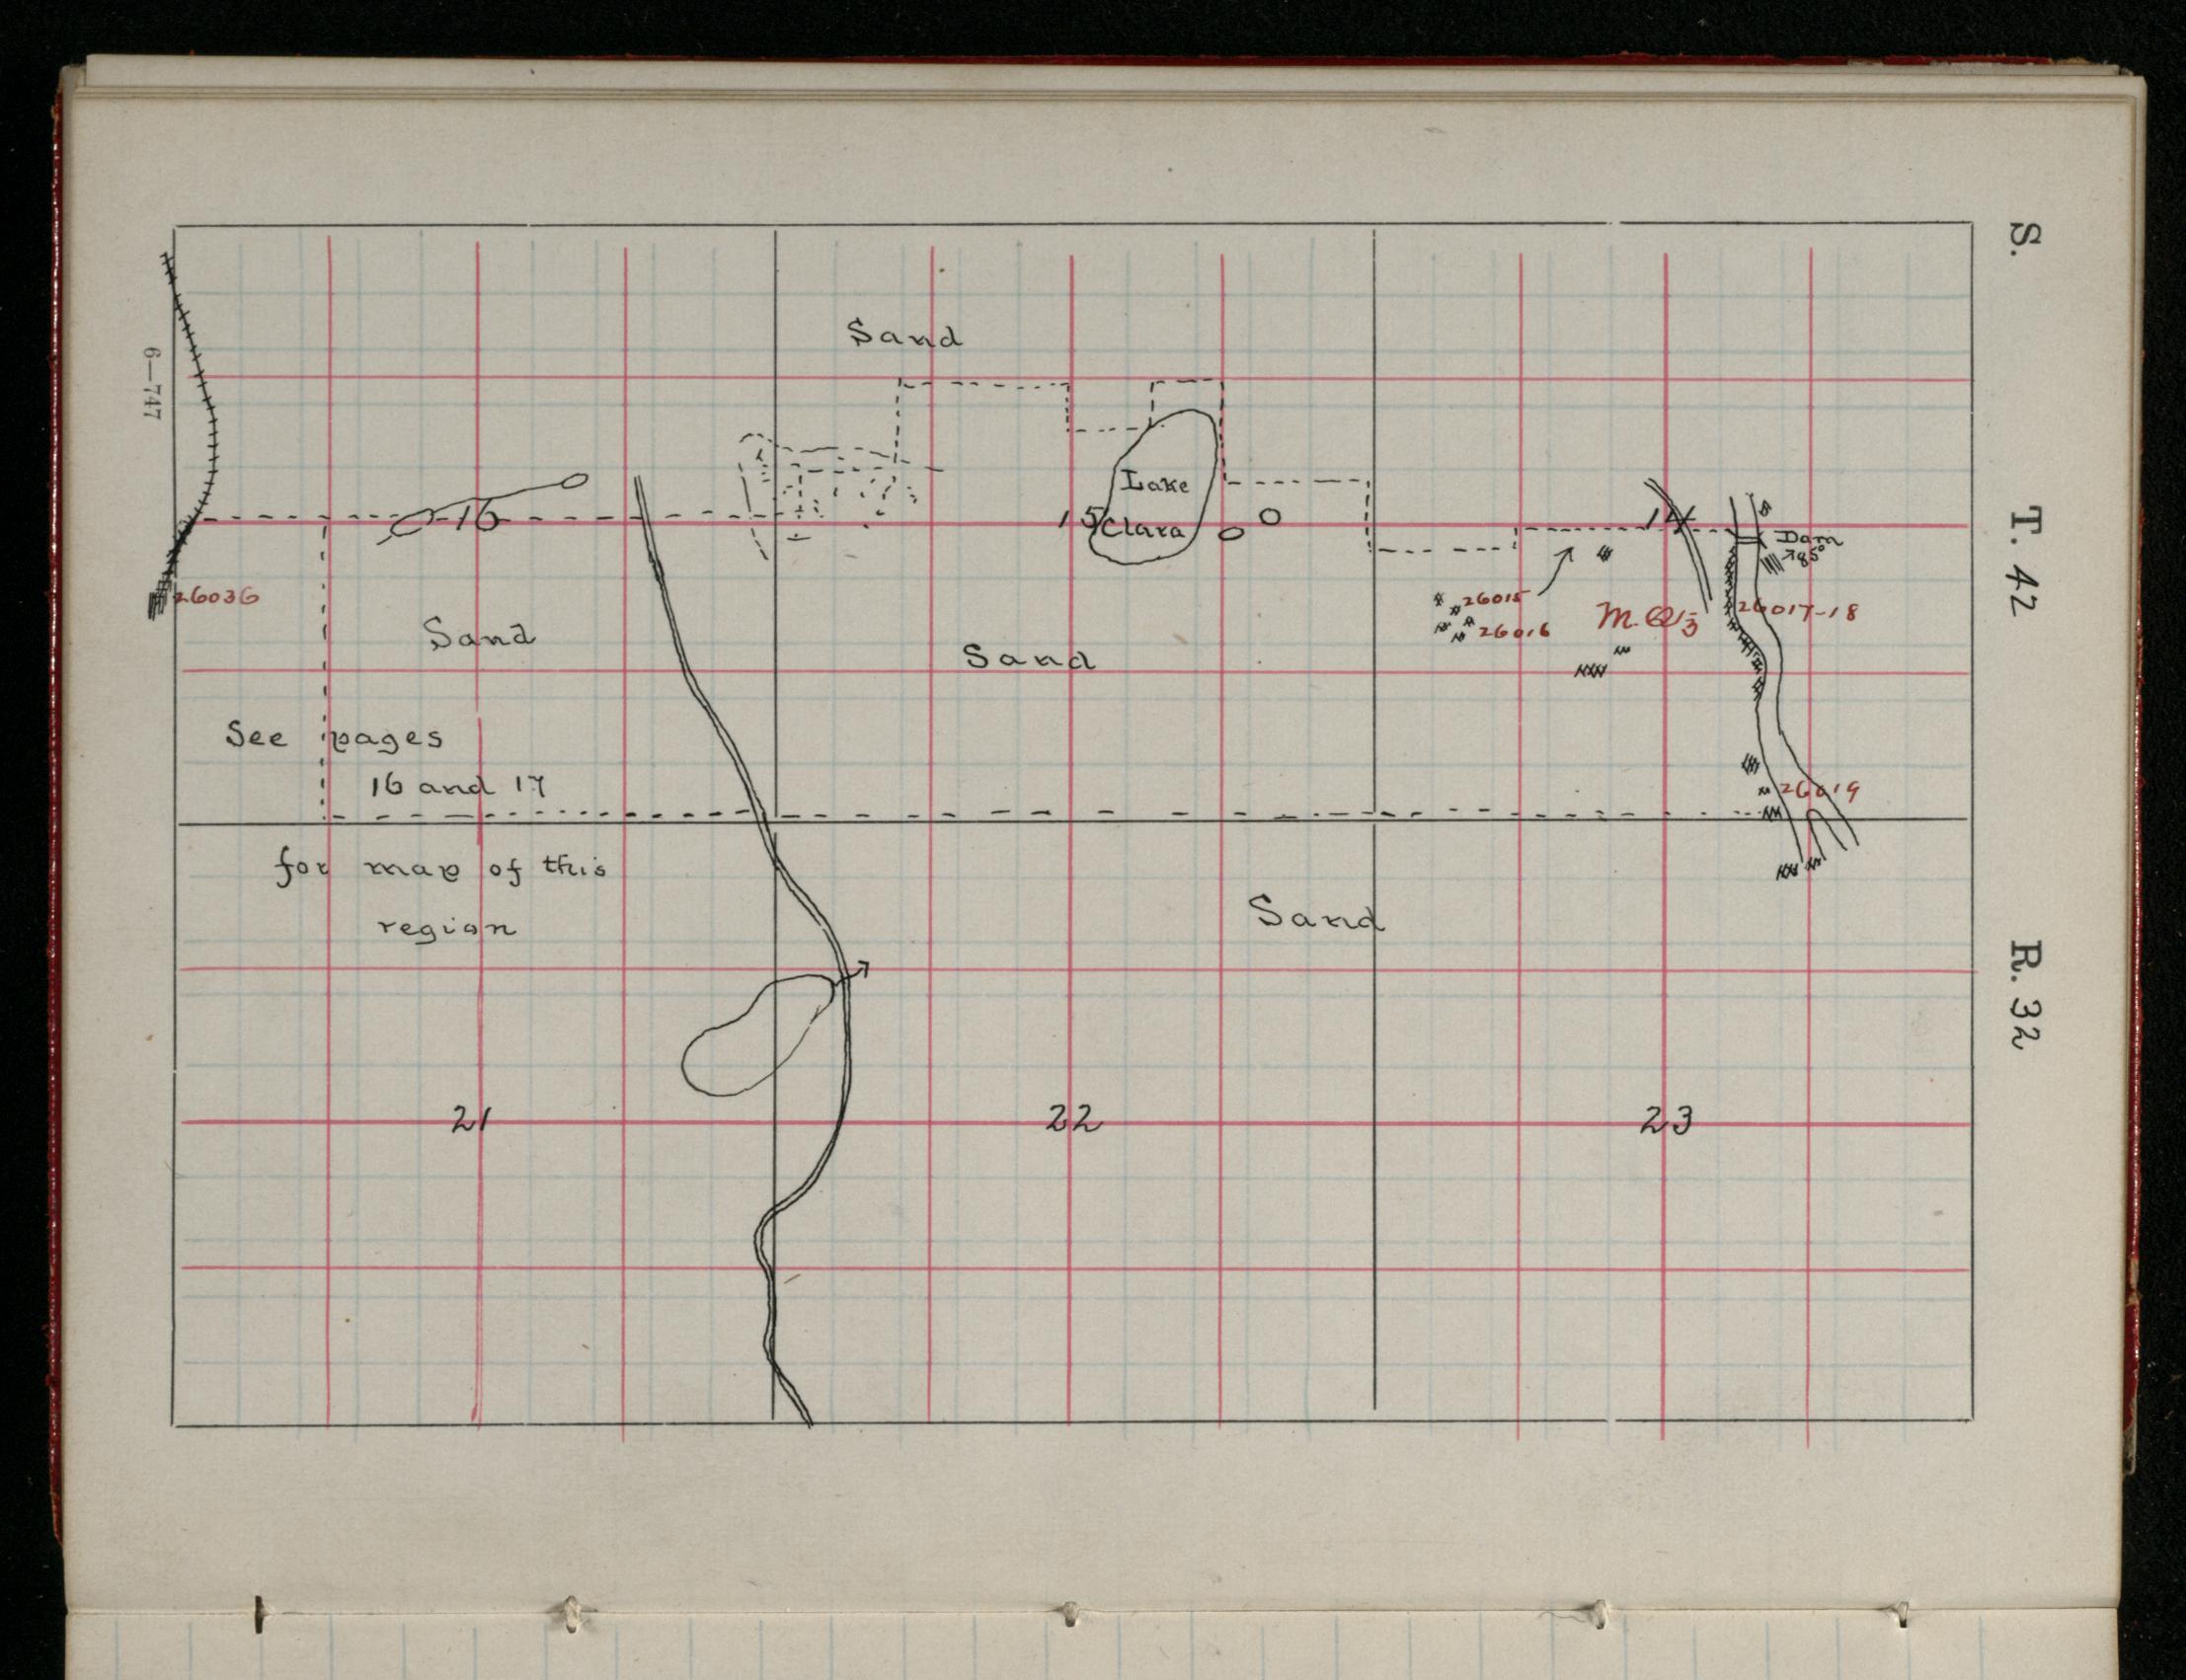 S. T. 42 R. 32
6—747
Sand
16
15
Lake
Clara
14
Dam
85°
26036
26015
26016
26017-18
Sand
Sand
See pages
16 and 17
26019
for map of this
region
Sand
21
22
23